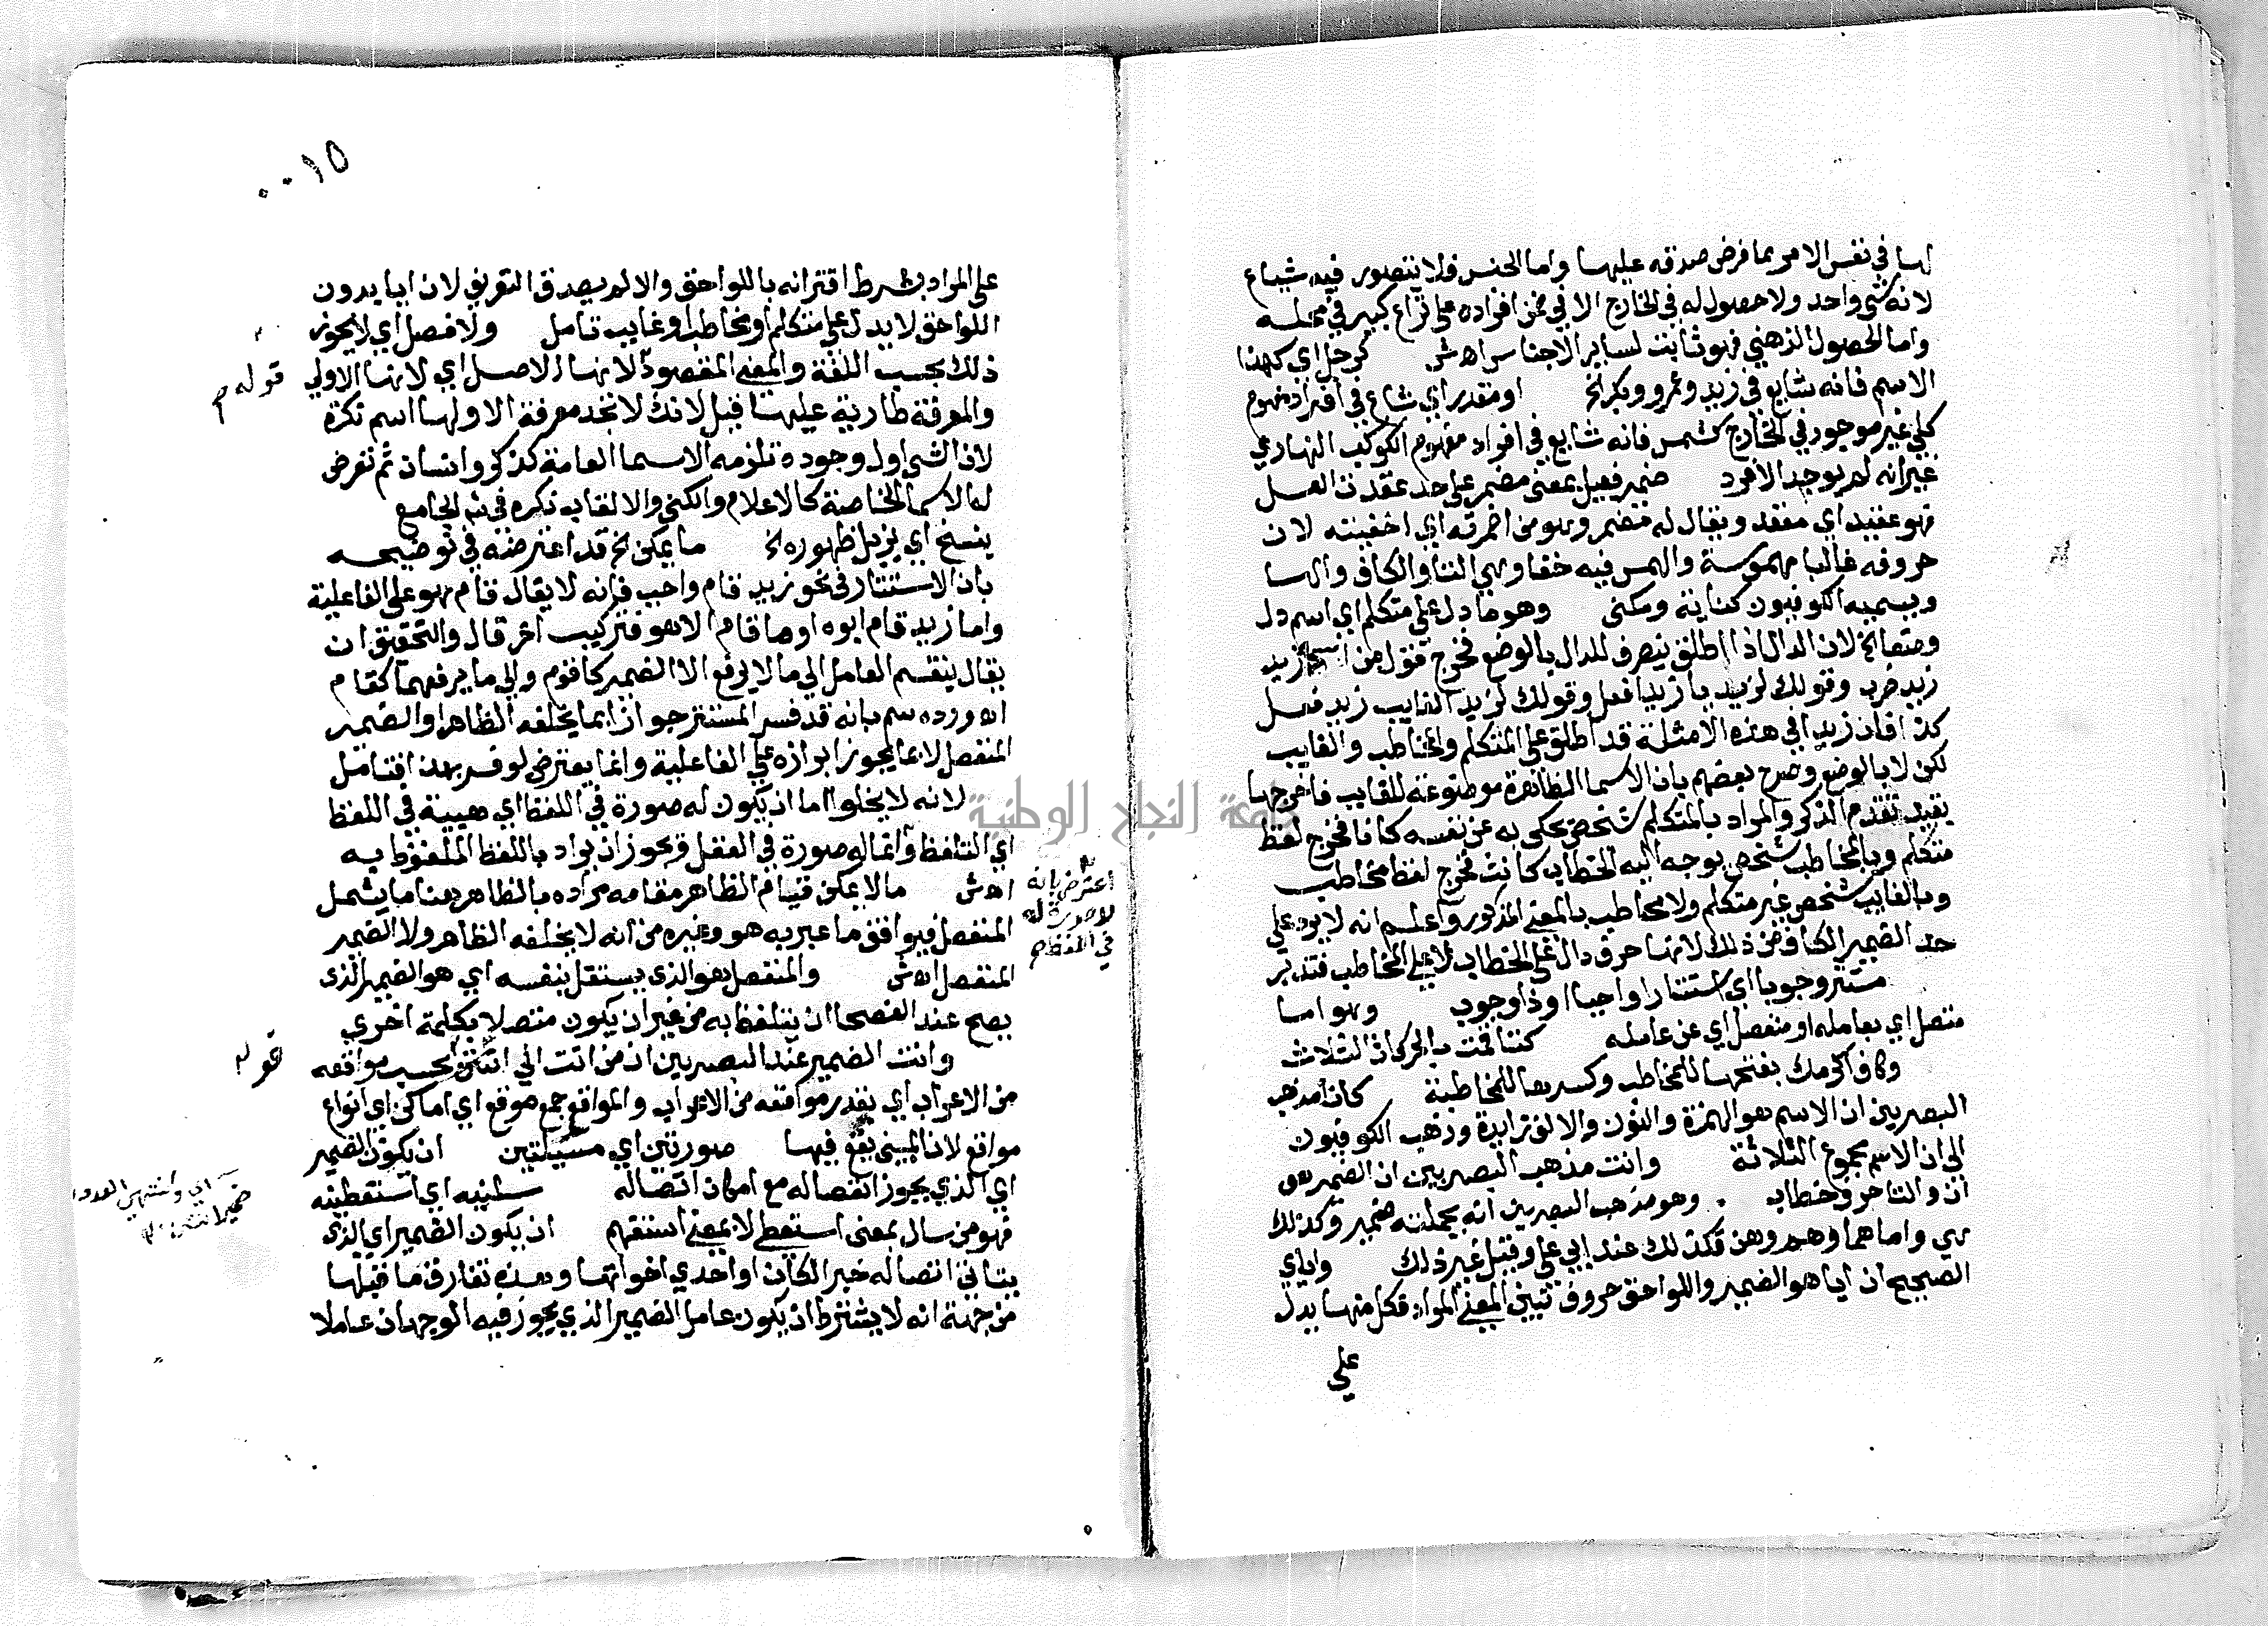 لها في نفس الامر بما فرض صدقه عليها واما الجنس فلا يتصور فيه شياع
لانه شي واحد ولا حصول له في الخارج الا في ضمن افراده على نزاع كبير في محله
واما الحصول الذهني فهو ثابت لساير الاجناس اهش كرجل اي كهذا
الاسم فانه شايع في زيد وعمرو وبكر الخ او مقدر اي شاع في افراد مفهوم
كلي غير موجود في الخارج كشمس فانه شايع في افراد مفهوم الكوكب النهاري
غير انه لم يوجد الا فرد ضمير فعيل بمعنى مضمر على حد عقدت العسل
فهو عقيد اي معقد ويقال له مضمر وهو من اضمرته اي اخفيته لان
حروفه غالبا مهموسة والهمس فيه خفا وهي التا والكاف والها
ويسميه الكوفيون كناية ومكنى وهو ما دل على متكلم اي اسم دل
وضعا الخ لان الدال اذا اطلق ينصرف للدال بالوضع فخرج قول من اسمه زيد
زيد ضرب وقولك لزيد يا زيد افعل وقولك لزيد الغايب زيد فعل
كذا فان زيدا في هذه الامثلة قد اطلق على المتكلم والمخاطب والغايب
لكن لا بالوضع وصرح بعضهم بان الاسما الظاهرة موضوعة للغايب فاخرجها
بقيد تقدم الذكر والمراد بالمتكلم شخص يحكي به عن نفسه كانا فخرج لفظ
متكلم وبالمخاطب شخص يوجه اليه الخطاب كانت فخرج لفظ مخاطب
وبالغايب شخص غير متكلم ولا مخاطب بالمعنى المذكور واعلم انه لا يرد على
حد الضمير الكاف من ذلك لانها حرف دال على الخطاب لا على المخاطب فتدبر
مستتر وجوبا اي استتارا واجبا او ذا وجوب وهو اما
متصل اي بعامله او منفصل اي عن عامله كتا قمت بالحركات الثلاث
وكاف اكرمك بفتحها للمخاطب وكسرها للمخاطبة كانا مذهب
البصريين ان الاسم هو الهمزة والنون والالف زايدة وذهب الكوفيون
الى ان الاسم مجموع الثلاثة وانت مذهب البصريين ان الضمير هو
ان والتا حرف خطاب وهو مذهب البصريين انه بجملته ضمير وكذلك
هي واما هما وهم وهن فكذلك عند ابي علي وقيل غير ذلك واياي
الصحيح ان ايا هو الضمير واللواحق حروف تبين المعنى المراد فكل منها يدل
على
٠٠١٥
على المراد بشرط اقترانه باللواحق والا لم يصدق التعريف لان ايا بدون
اللواحق لا يدل على متكلم او مخاطب او غايب تامل ولا فصل اي لا يجوز
ذلك بحسب اللغة والمعنى المقصود لانها الاصل اي لانها الاولى
قوله م
والمعرفة طارية عليها قيل لانك لا تجد معرفة الا ولها اسم نكرة
لان الشي اول وجوده تلزمه الاسما العامة كذكر وانسان ثم تعرض
له الاسما الخاصة كالاعلام والكنى والالقاب ذكره في شم الجامع
ينسخ اي يزيل ظهوره الخ ما يمكن الخ قد اعترضه في توضيحه
بان الاستتار في نحو زيد قام واجب فانه لا يقال قام هو على الفاعلية
واما زيد قام ابوه او ما قام الا هو فتركيب اخر قال والتحقيق ان
يقال ينقسم العامل الى ما لا يرفع الا الضمير كاقوم والى ما يرفعهما كقام
اه ورده سم بانه قد فسر المستتر جوازا بما يخلفه الظاهر او الضمير
المنفصل لا بما يجوز ابرازه على الفاعلية وانما يعترض لو فسر بهذا فتامل
لانه لا يخلوا اما ان يكون له صورة في اللفظ اي هيية في اللفظ
اي التلفظ وانما له صورة في العقل ويجوز ان يراد باللفظ الملفوظ به
اعترض بانه
لا صورة له
في اللفظ م
اهش ما لا يمكن قيام الظاهر مقامه مراده بالظاهر هنا ما يشمل
المنفصل فيوافق ما عبر به هو وغيره من انه لا يخلفه الظاهر ولا الضمير
المنفصل اهش والمنفصل هو الذي يستقل بنفسه اي هو الضمير الذي
يصح عند الفصحا ان يتلفظ به من غير ان يكون متصلا بكلمة اخرى
قوله
وانت الضمير عند البصريين ان من انت الى انتن بحسب مواقعه
من الاعراب اي بقدر مواقعه من الاعراب والمواقع جمع موقع اي اماكن اي انواع
مواقع لان المبني يقع فيها صورتين اي مسئلتين ان يكون الضمير
اي الذي يجوز انفصاله مع امكان اتصاله سلنيه اي استعطينه
اي وانتهي العدد
ضمير انتن
فهو من سال بمعنى استعطى لا بمعنى استفهم ان يكون الضمير اي الذي
يتاتى اتصاله خبرا لكان او احدي اخواتها وهذه تفارق ما قبلها
من جهة انه لا يشترط ان يكون عامل الضمير الذي يجوز فيه الوجهان عاملا
جامعة النجاح الوطنية